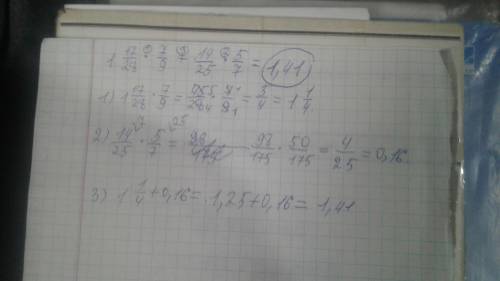 1 17/28 · 7/9 + 14/25 · 5/7 = 1,41
1) 1 17/28 · 7/9 = 45/28 · 7/9 = 5/4 = 1 1/4
2) 14/25 · 5/7 = 98/175 · 50/175 = 4/25 = 0,16.
3) 1 1/4 + 0,16 = 1,25 + 0,16 = 1,41